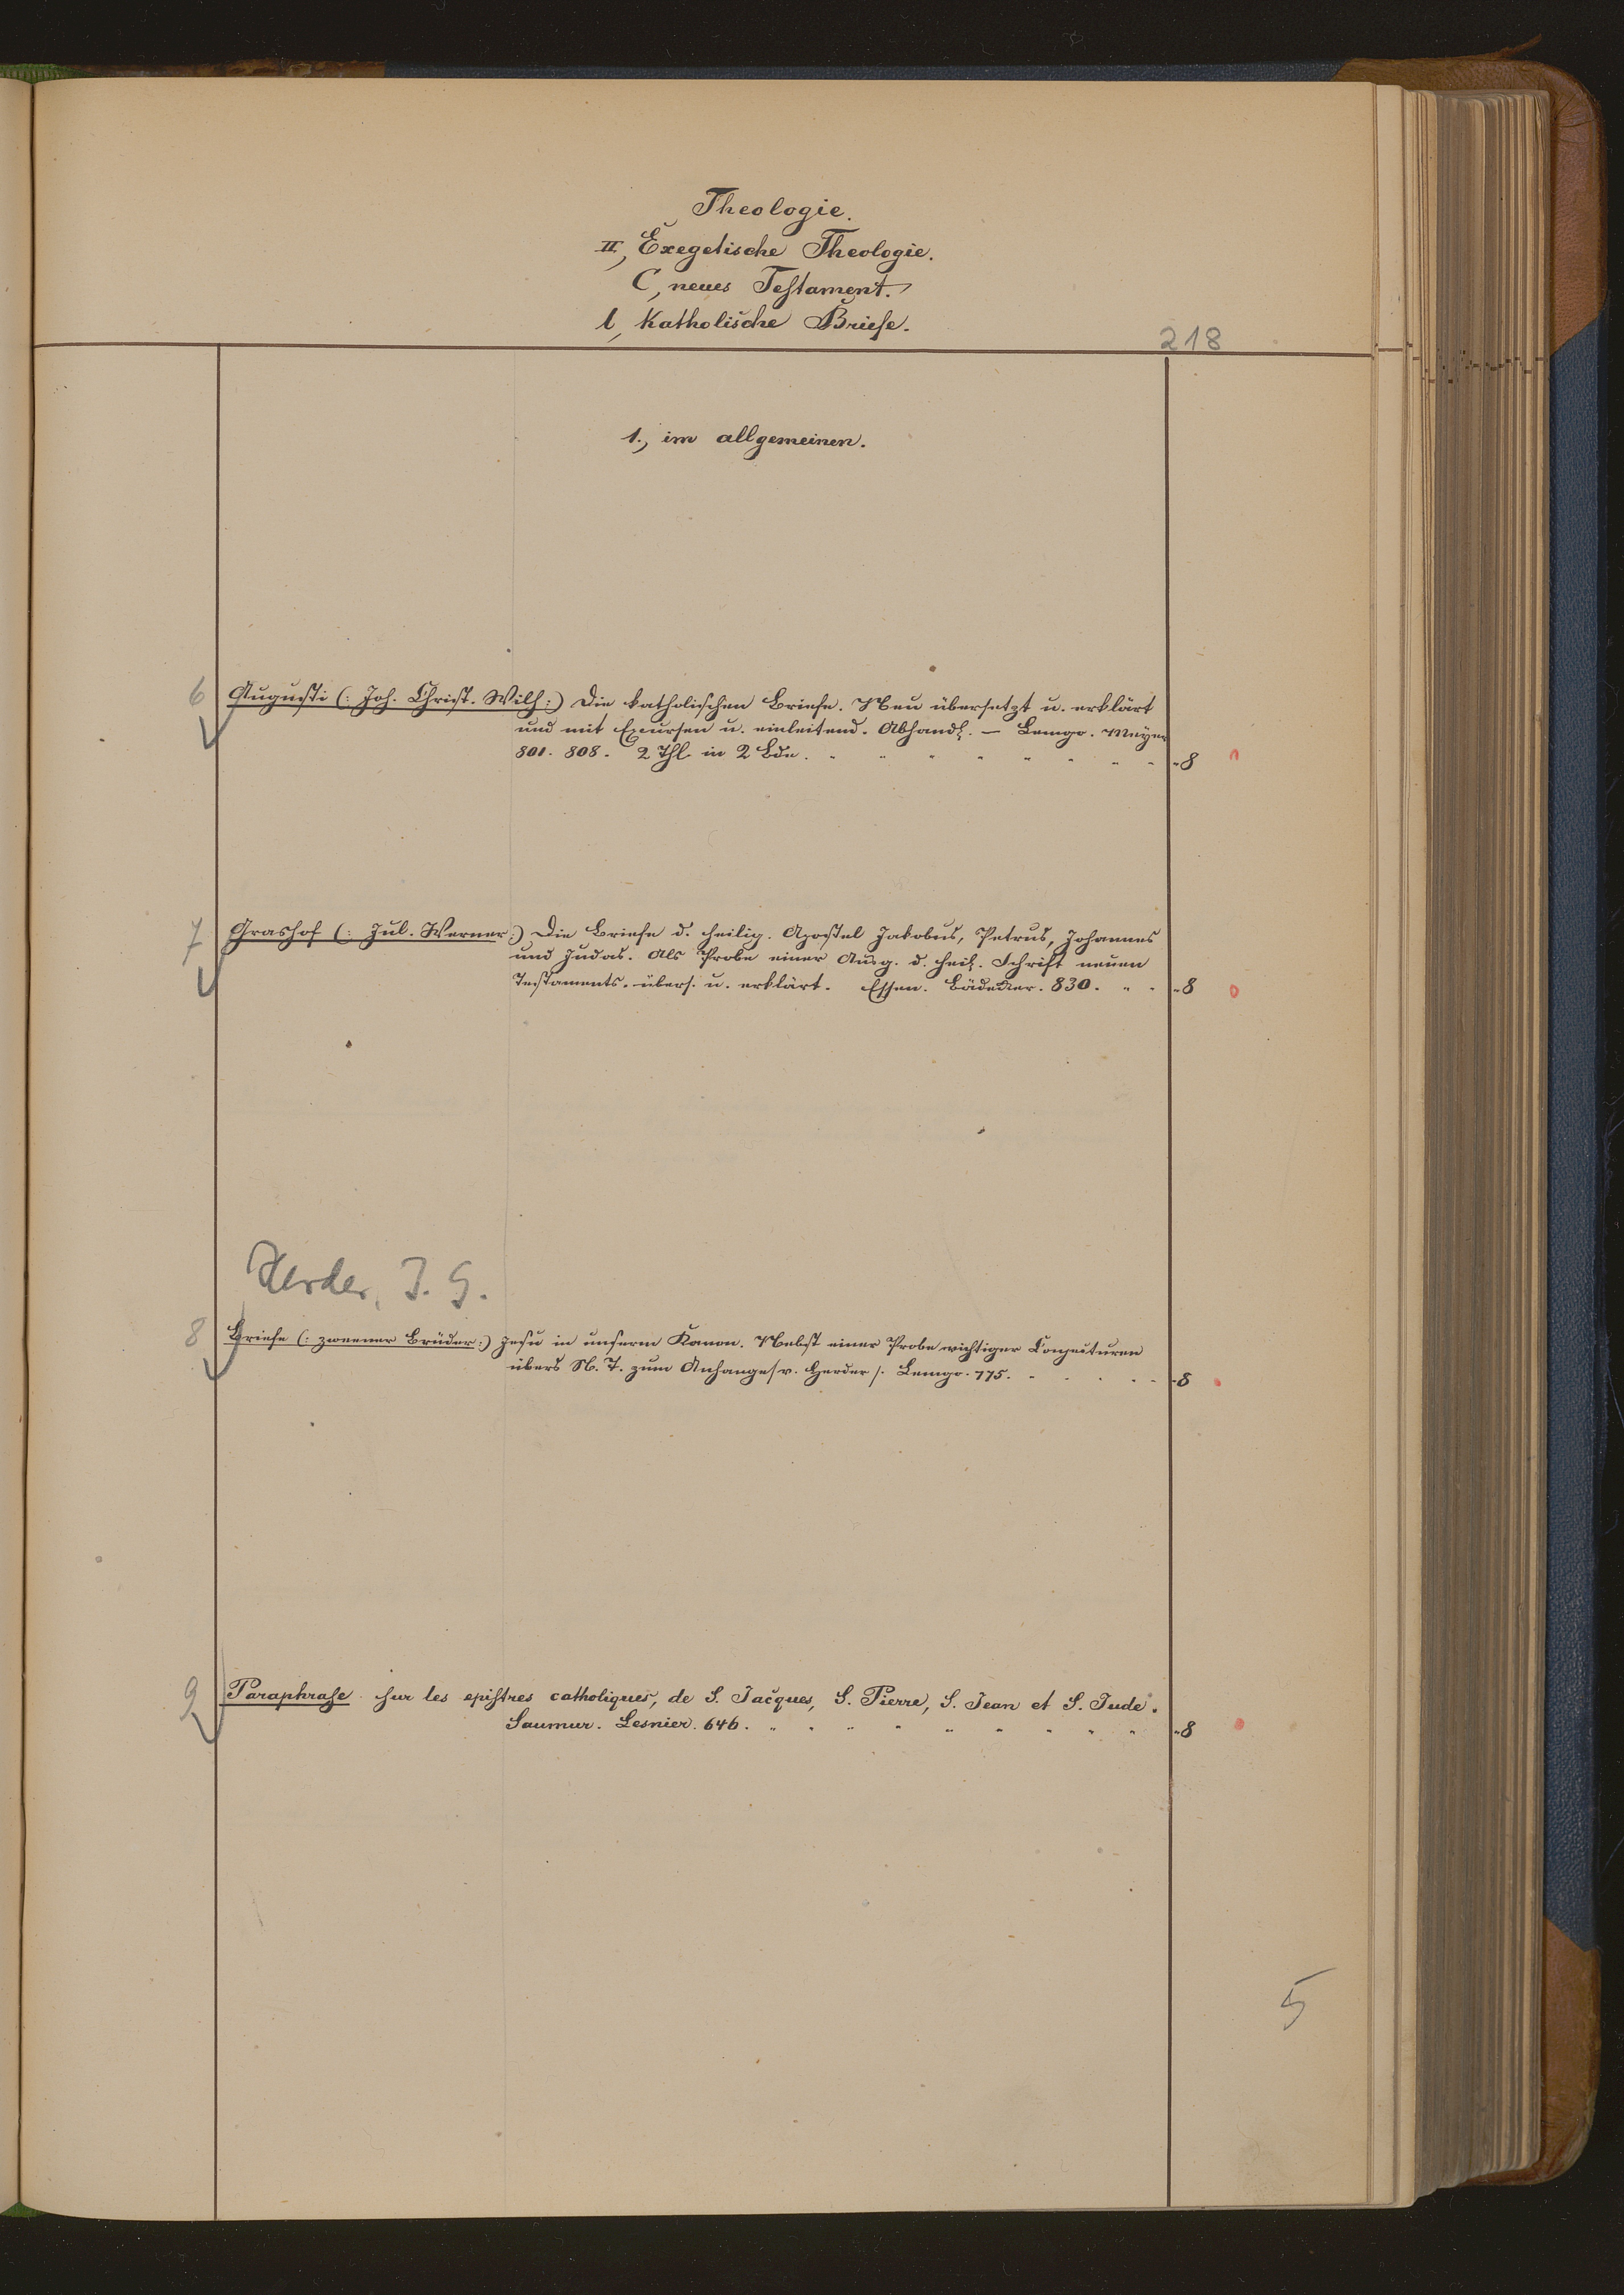 Theologie.
II, Exegetische Theologie.
C, neues Testament.
l, Katholische Briefe.
218
1., im allgemeinen.
6 Augusti (: Joh. Christ. Wilh:) Die katholischen Briefe. Neu übersetzt u. erklärt
und mit Excursen u. einleitend. Abhandl. — Lemgo. Meyer
801. 808. 2 Thl. in 2 Bde. - 8
7 Grashof (: Jul. Werner:) Die Briefe d. heilig. Apostel Jakobus, Petrus, Johannes
und Judas. Als Probe einer Ausg. d. heil. Schrift neuen
Testaments. übers. u. erklärt. Essen. Bädeker. 830. - 8
Herder, J. G.
8 Briefe (: zweener Brüder:) Jesu in unserm Kanon. Nebst einer Probe wichtiger Conjecturen
übers N. T. zum Anhange /v. Herder/. Lemgo. 775. - 8
9 Paraphrase sur les epistres catholiques, de S. Jacques, S. Pierre, S. Jean et S. Jude.
Saumur. Lesnier. 646. - 8
5